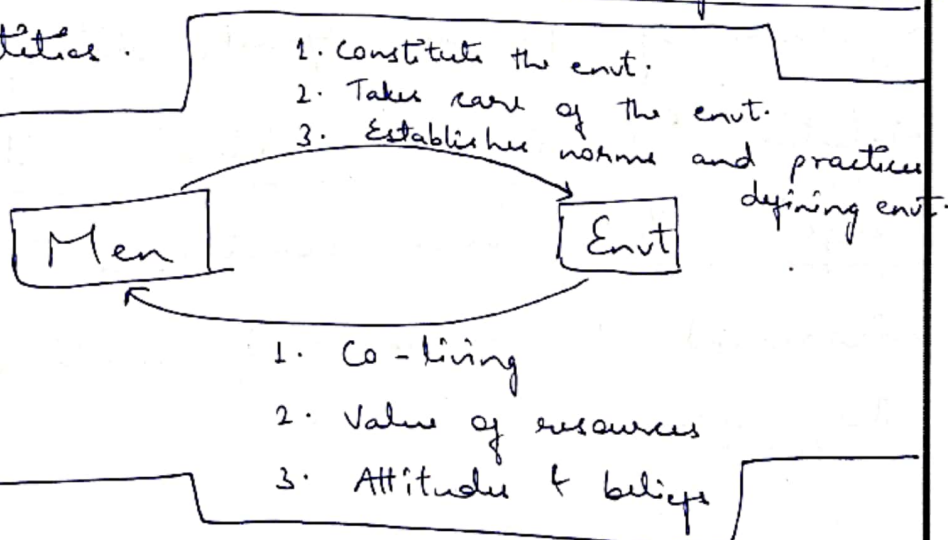 1. Constitute the envt.
2. Takes care of the envt.
3. Establishes norms and practices
defining envt.
Men
Envt
1. Co-living
2. Value of resources
3. Attitudes & beliefs